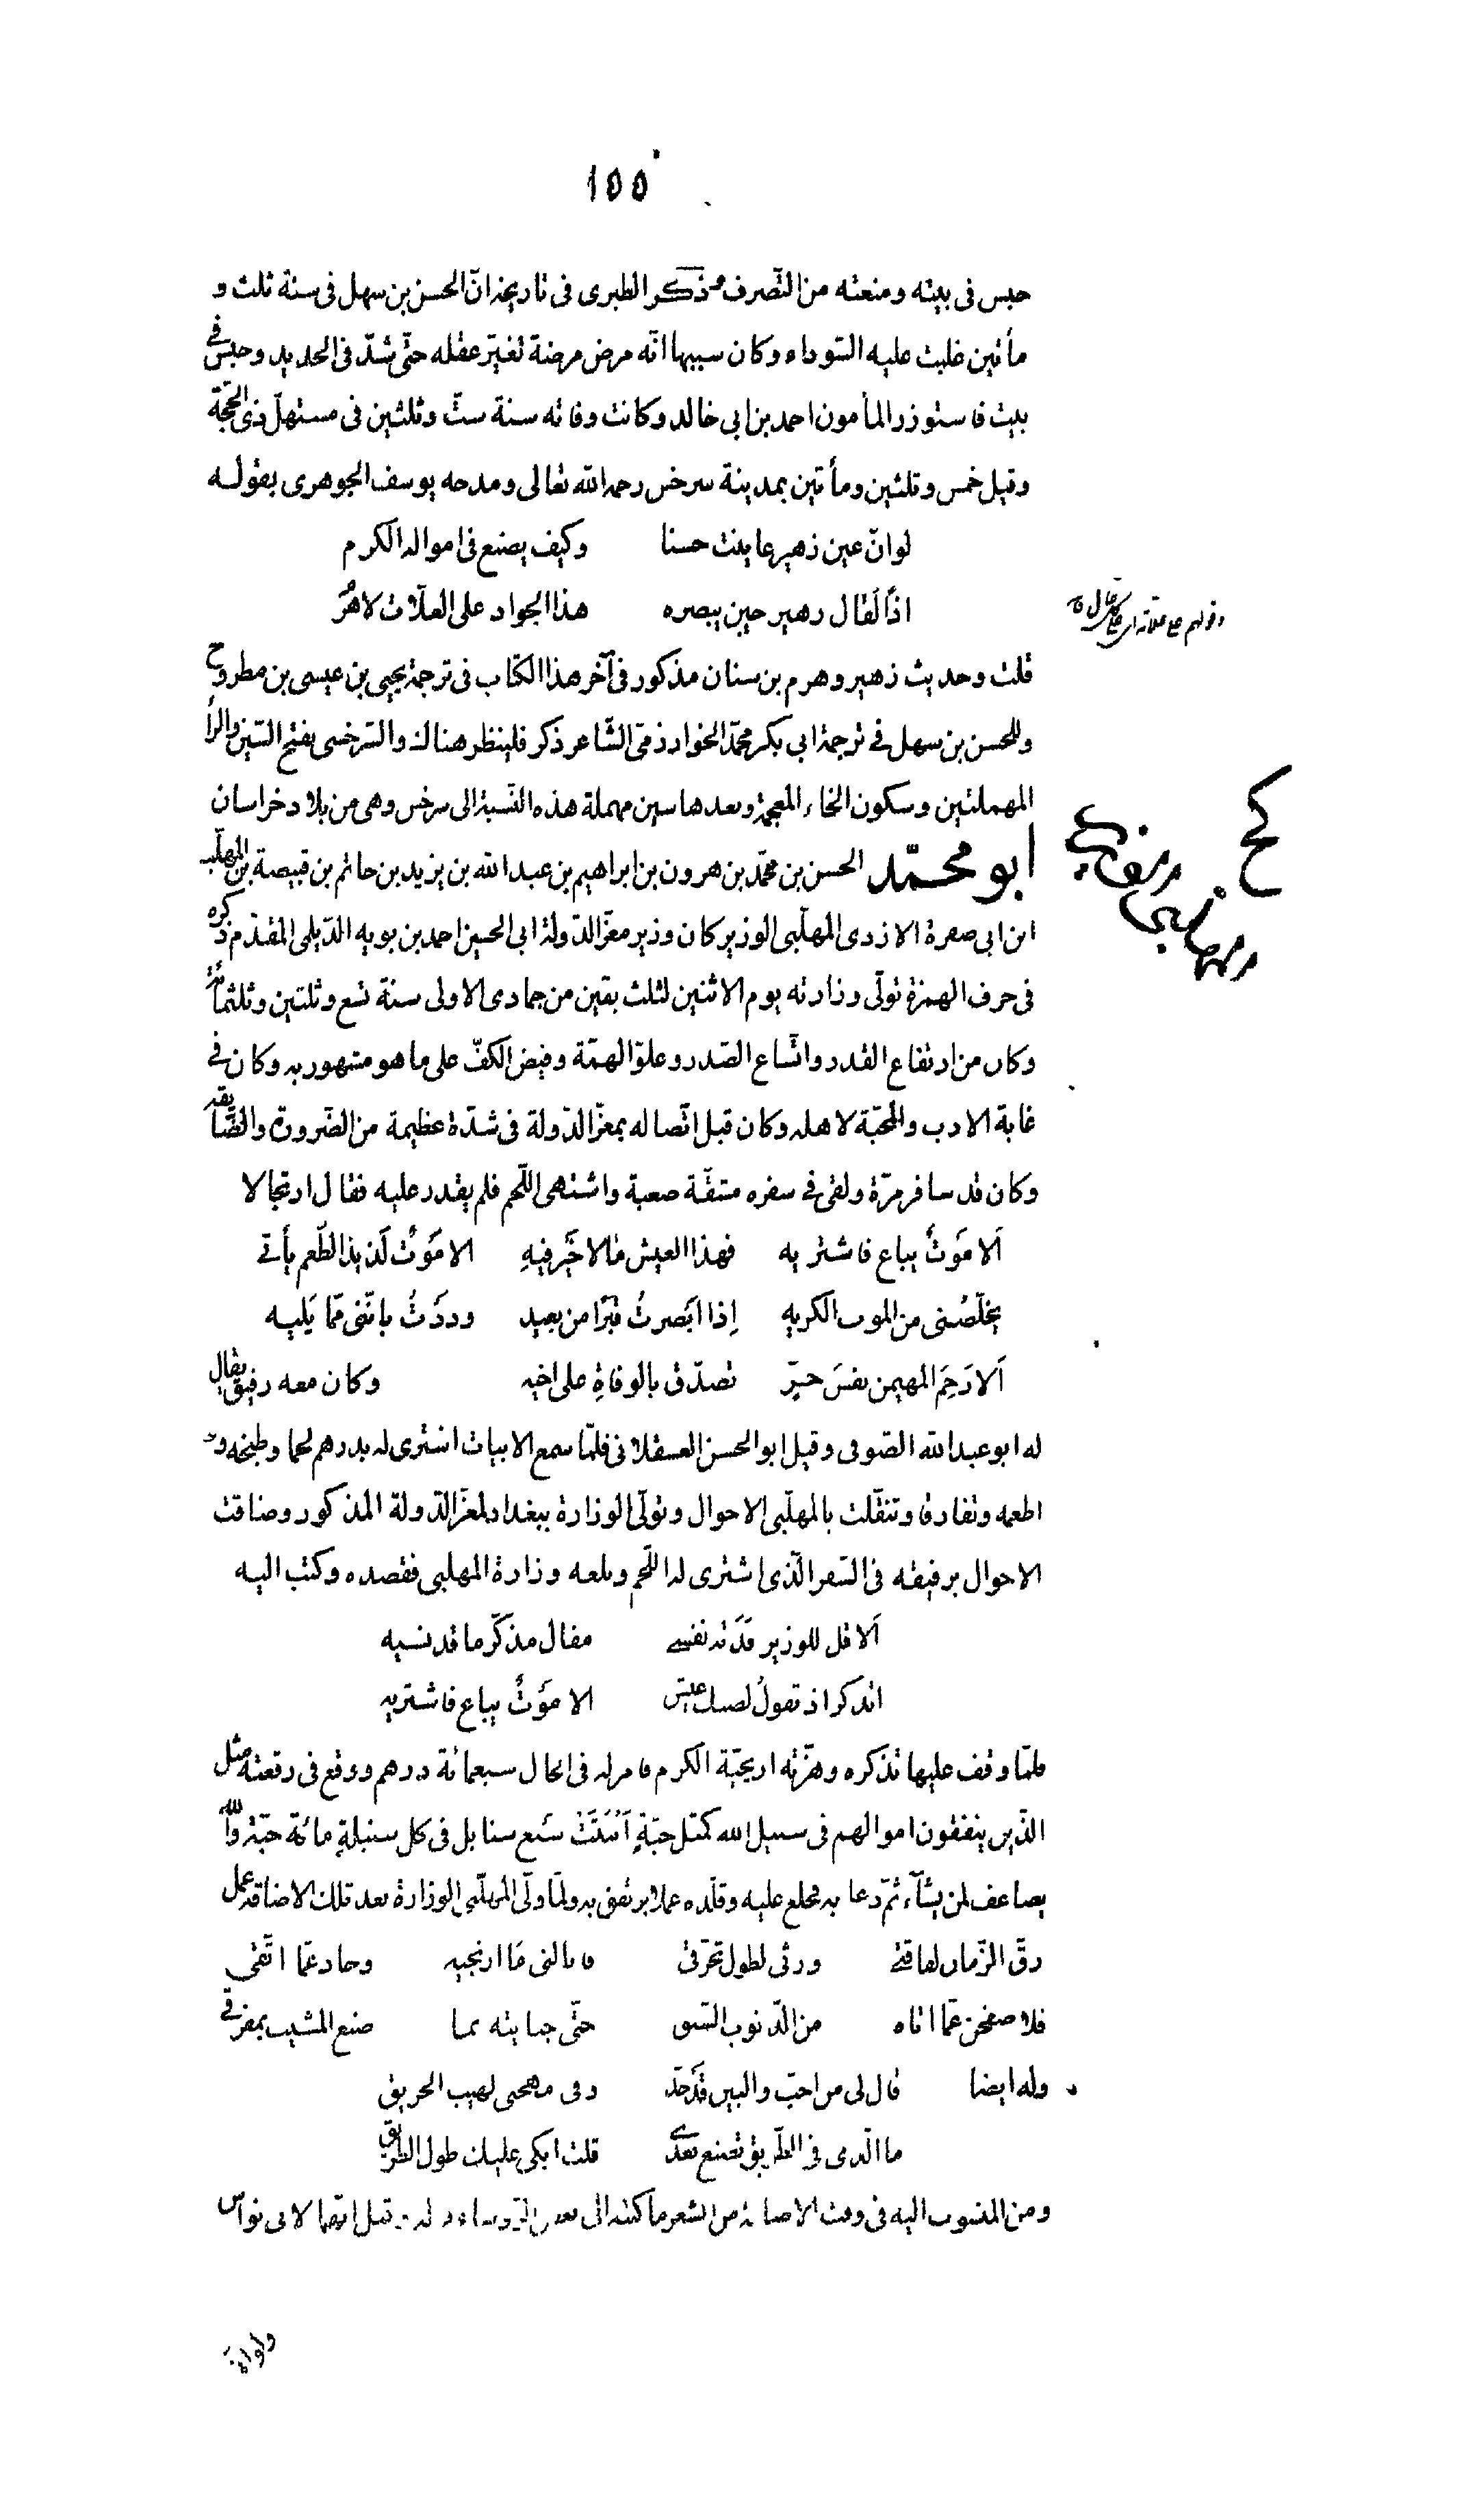 ١٥٥
حبس فى بيته ومنعته من التّصرف وذكر الطبرى فى تاريخه انّ الحسن بن سهل فى سنة ثلث و
مأتين غلبت عليه السّوداء وكان سببها انّه مرض مرضة تغيّر عقله حتّى شدّ فى الحديد وحبس فى
بيت فاستوزر المأمون احمد بن ابى خالد وكانت وفاته سنة ستّ وثلثين فى مستهلّ ذى الحجّة
وقيل خمس وثلثين ومأتين بمدينة سرخس رحمه الله تعالى ومدحه يوسف الجوهرى بقوله
لو انّ عين زهير عاينت حسنا وكيف يصنع فى امواله الكرم
اذًا لقال زهير حين يبصره هذا الجواد على العلّات لا هرُ
وقولهم على علاته اى على كل حال
قلت وحديث زهير وهرم بن سنان مذكور فى آخر هذا الكتاب فى ترجمة يحيى بن عيسى بن مطروح
وللحسن بن سهل فى ترجمة ابى بكر محمّد الخوارزمىّ الشّاعر ذكر فلينظر هناك والسّرخسى بفتح السّين والرأ
المهملتين وسكون الخاء المعجمة وبعدها سين مهملة هذه النّسبة الى سرخس وهى من بلاد خراسان
ابو محمّد الحسن بن محمّد بن هرون بن ابراهيم بن عبد الله بن يزيد بن حاتم بن قبيصة بن المهلّب
ابن ابى صفرة الازدى المهلّبى الوزير كان وزير معزّ الدّولة ابى الحسين احمد بن بويه الدّيلمى المقدّم ذكره
فى حرف الهمزة تولّى وزارته يوم الاثنين لثلث بقين من جمادى الاولى سنة تسع وثلثين وثلثمائة
وكان من ارتفاع القدر واتّساع الصّدر وعلوّ الهمّة وفيض الكفّ على ما هو مشهور به وكان فى
غاية الادب والمحبّة لاهله وكان قبل اتّصاله بمعزّ الدّولة فى شدّة عظيمة من الضّرورة والضّايقه
وكان قد سافر مرّة ولقى فى سفره مشقّة صعبة واشتهى اللّحم فلم يقدر عليه فقال ارتجالا
اَلا مَوتٌ يباع فاشتريه فهذا العيش مالا خَيرَ فيهِ الا مَوتٌ لَذيذ الطّعم يأتى
يخلّصُنى من الموت الكريهِ اِذا ابَصرتُ قبرًا من بعيد وددَتُ بانّنى ممّا يَليه
اَلا رَحِمَ المهيمن نفسَ حرّ تصدّق بالوفاةِ على اخيه وكان معه رفيق يقال
له ابو عبد الله الصّوفى وقيل ابو الحسن العسقلانى فلمّا سمع الابيات اشترى له بدرهم لحما وطبخه و
اطعمه وتفارقا وتنقّلت بالمهلّبى الاحوال وتولّى الوزارة ببغداد لمعزّ الدّولة المذكور وضاقت
الاحوال برفيقه فى السّفر الّذى اشترى له اللّحم وبلغه وزارة المهلبى فقصده وكتب اليه
اَلا قل للوزير فَدَته نفسى مقال مذكّر ما قد نسيه
اتذكر اذ تقولُ لضنك عيش الا مَوتٌ يباع فاشتريه
فلمّا وقف عليها تذكره وهزّته اريحيّة الكرم فامر له فى الحال سبعمائة درهم ووقع فى رقعته مثل
الّذين ينفقون اموالهم فى سبيل الله كمثل حبّةٍ اَنْبَتَتْ سَبع سنابل فى كل سنبلةٍ مائة حبّة والله
يضاعف لمن يشآء ثمّ دعا به فخلع عليه وقلّده عملا يرتفق به ولمّا ولّى المهلّبى الوزارة بعد تلك الاضاقة عمل
رقّ الزّمان لفاقتى ورثى لطول تحرّقى فانالنى ما ارتجيه وحاد عمّا اتّقى
فلا صفحن عمّا اتاه من الذّنوب السّبق حتّى جنايته بما صنع المشيب بمفرقى
وله ايضا قال لى من احبّ والبين قَدجدّ وفى مهجتى لهيب الحريق
ما الّذى فى الطّريق تصنع بعدى قلت ابكى عليك طول الطّريق
ومن المنسوب اليه فى وقت الاضاقة من الشعر ما كتبه الى بعض الرّوساء وقيل انّهما لابى نواس